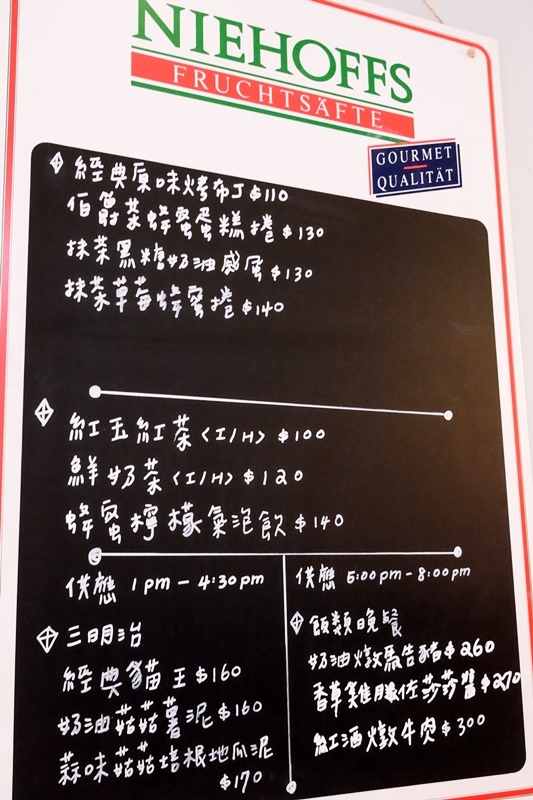 NIEHOFFS
FRUCHTSÄFTE
GOURMET
QUALITÄT
經典原味烤布丁 $110
伯爵茶蜂蜜蛋糕捲 $130
抹茶黑糖奶油戚風 $130
抹茶草莓蜂蜜捲 $140
紅玉紅茶〈I/H〉 $100
鮮奶茶〈I/H〉 $120
蜂蜜檸檬氣泡飲 $140
供應 1pm - 4:30pm
三明治
經典貓王 $160
奶油菇菇薯泥 $160
蒜味菇菇培根地瓜泥
$170
供應 5:00pm - 8:00pm
飯類晚餐
奶油燉馬告豬 $260
香草雞腿佐莎莎醬 $270
紅酒燉牛肉 $300